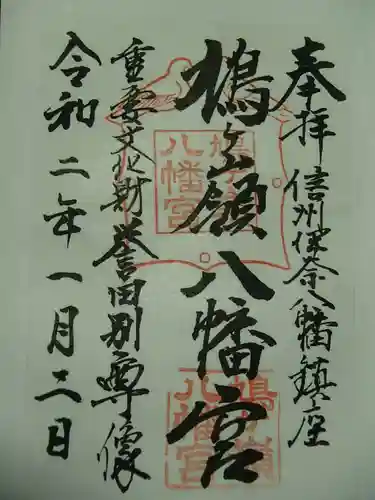 奉拝 信州伊奈八幡鎮座
鳩ヶ嶺八幡宮
重要文化財 誉田別尊像
令和二年一月二日
鳩ヶ嶺
八幡宮
鳩ヶ嶺
八幡宮